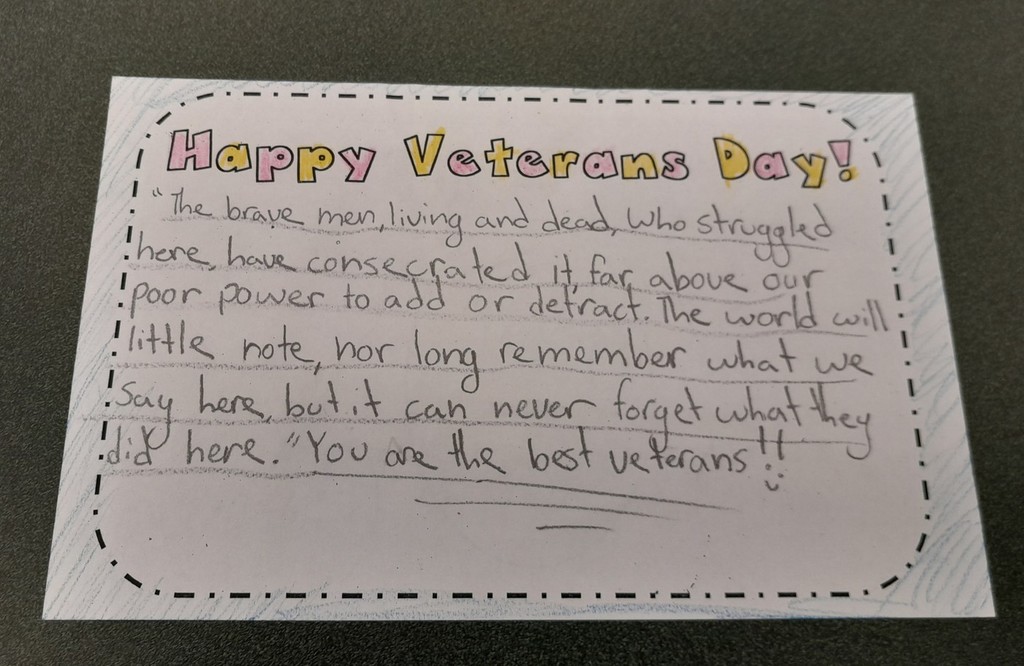 Happy Veterans Day!
"The brave men, living and dead, who struggled
here, have consecrated it, far above our
poor power to add or detract. The world will
little note, nor long remember what we
say here, but it can never forget what they
did here. "You are the best veterans!!